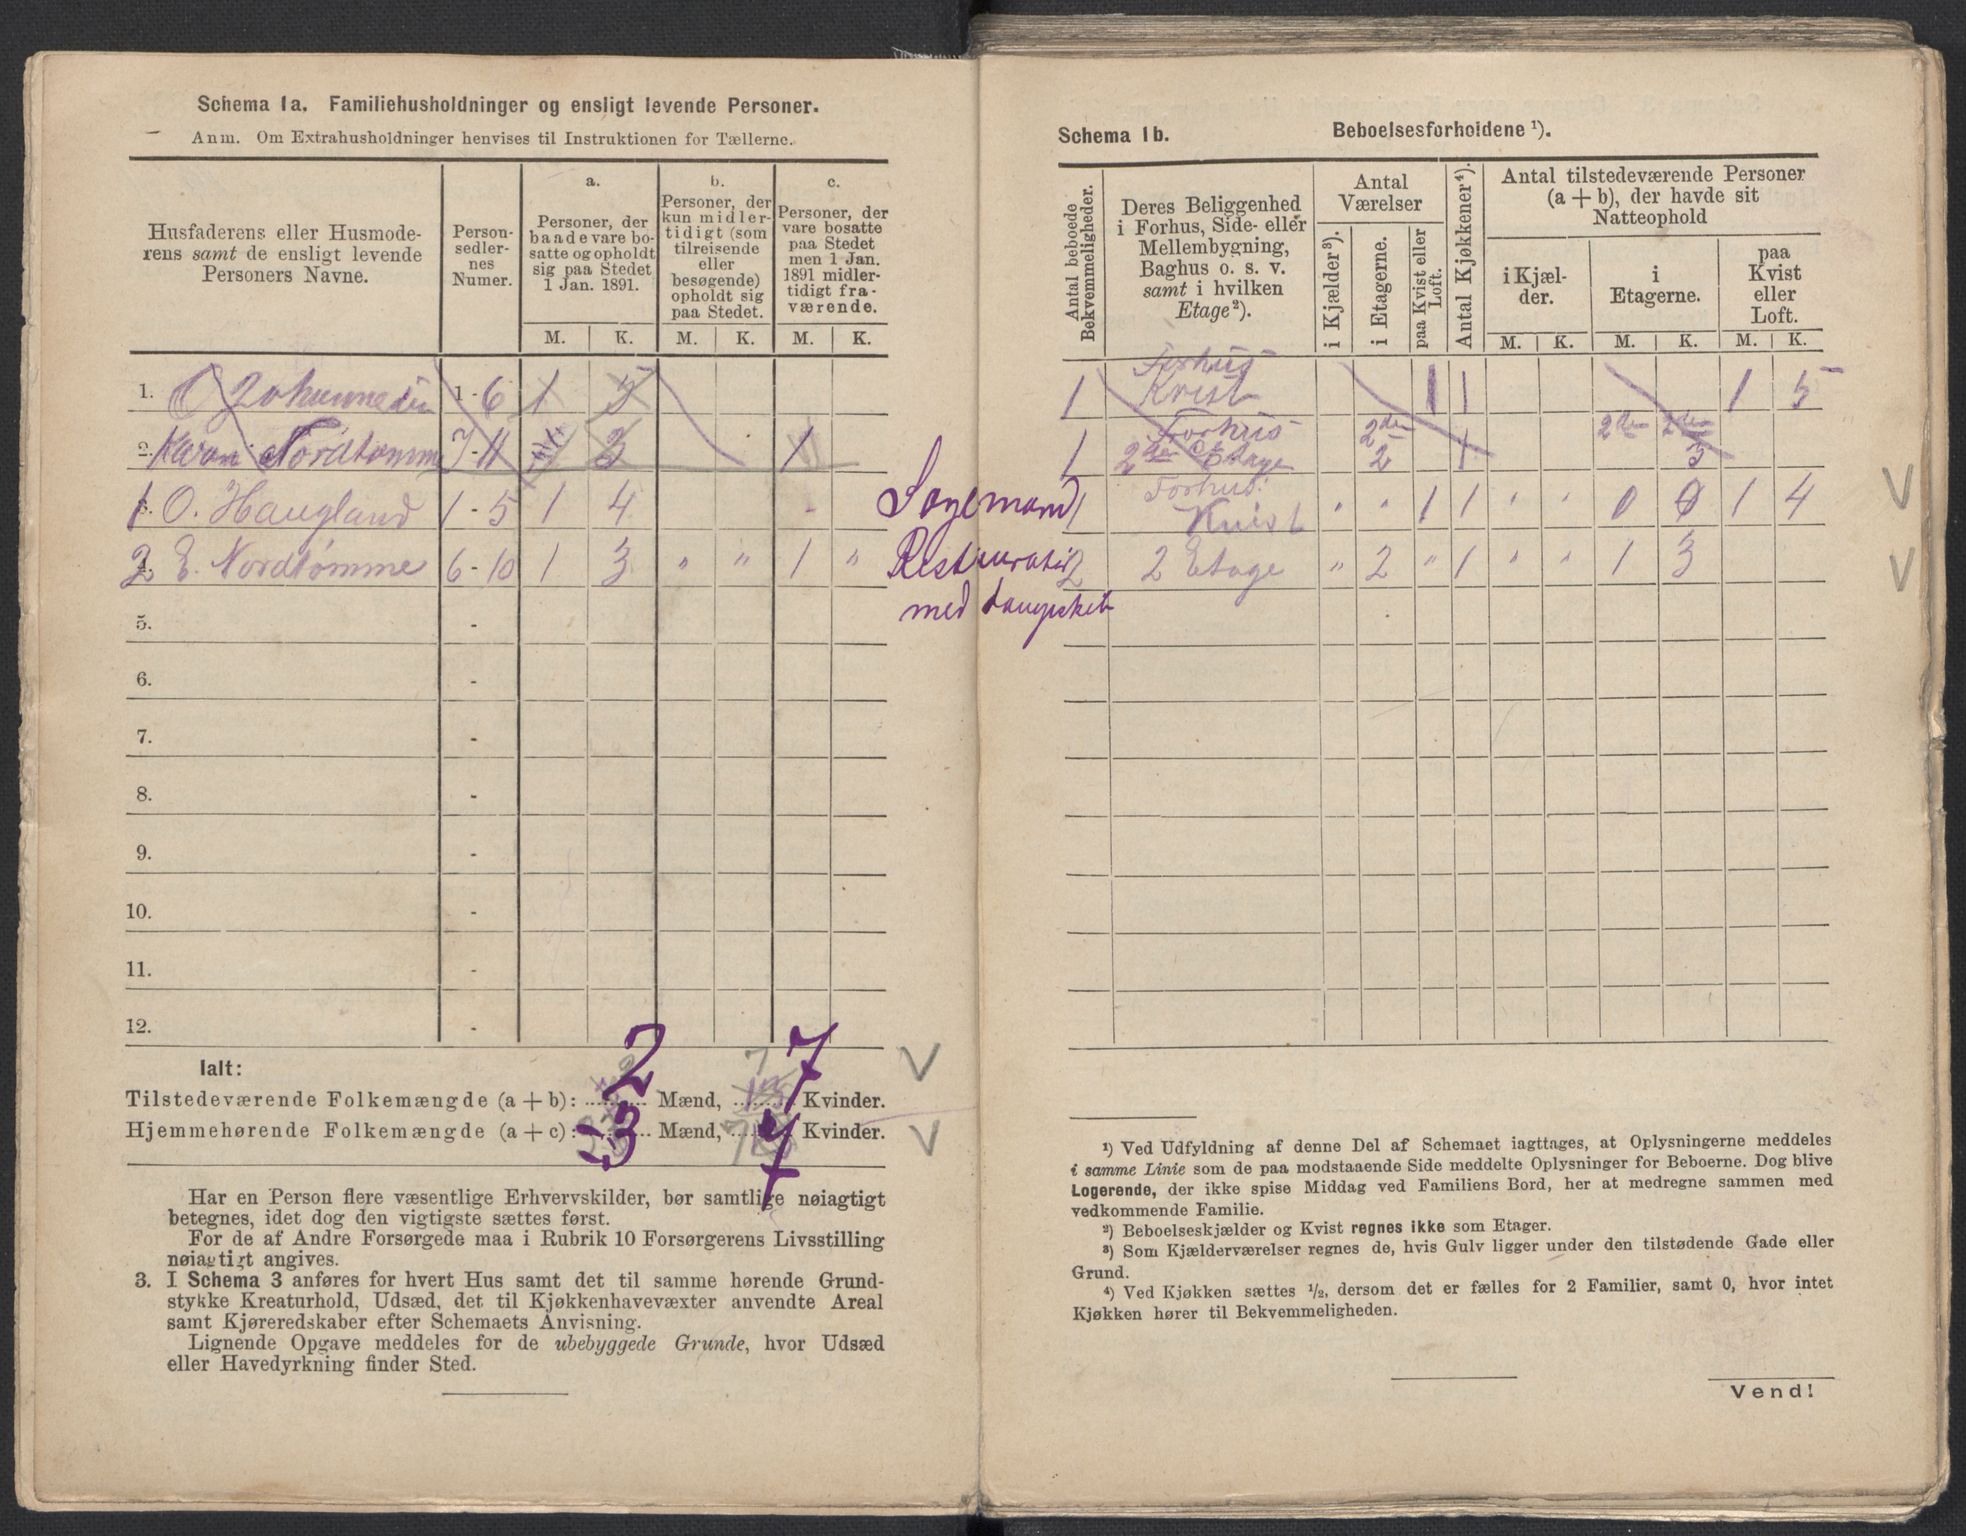 Schema 1a. Familiehusholdninger og ensligt levende Personer.
Anm. Om Extrahusholdninger henvises til Instruktionen for Tællerne.
Husfaderens eller Husmoderens samt de ensligt levende Personers Navne.
Person-
sedler-
nes
Numer.
a.
Personer, der
baade vare bo-
satte og opholdt
sig paa Stedet
1 Jan. 1891.
M. K.
b.
Personer, der
kun midler-
tidigt (som
tilreisende
eller
besøgende)
opholdt sig
paa Stedet.
M. K.
c.
Personer, der
vare bosatte
paa Stedet
men 1 Jan.
1891 midler-
tidigt fra-
værende.
M. K.
1. O Johannesen 1 - 6 1 5
2. Karen Nordtømme 7 - 11 3 1
1 3. O. Haugland 1 - 5 1 4
2 4. E. Nordtømme 6 - 10 1 3 " " 1 "
5. -
6. -
7. -
8. -
9. -
10. -
11. -
12. -
Ialt:
Tilstedeværende Folkemængde (a + b): 2 Mænd, 7 Kvinder.
Hjemmehørende Folkemængde (a + c): 3 Mænd, 7 Kvinder.
Har en Person flere væsentlige Erhvervskilder, bør samtlige nøiagtigt
betegnes, idet dog den vigtigste sættes først.
For de af Andre Forsørgede maa i Rubrik 10 Forsørgerens Livsstilling
nøiagtigt angives.
3. I Schema 3 anføres for hvert Hus samt det til samme hørende Grund-
stykke Kreaturhold, Udsæd, det til Kjøkkenhavevæxter anvendte Areal
samt Kjøreredskaber efter Schemaets Anvisning.
Lignende Opgave meddeles for de ubebyggede Grunde, hvor Udsæd
eller Havedyrkning finder Sted.
Schema 1b. Beboelsesforholdene ¹).
Antal beboede
Bekvemmeligheder.
Deres Beliggenhed
i Forhus, Side- eller
Mellembygning,
Baghus o. s. v.
samt i hvilken
Etage ²).
Antal
Værelser
i Kjælder ³).
i Etagerne.
paa Kvist eller
Loft.
Antal Kjøkkener ⁴).
Antal tilstedeværende Personer
(a + b), der havde sit
Natteophold
i Kjæl-
der.
M. K.
i
Etagerne.
M. K.
paa
Kvist
eller
Loft.
M. K.
1 Forhus
Kvist 1 1 1 5
1 Forhus
2den Etage 2den
2 1 2den 2den
3
Sagemand 1 Forhus:
Kvist " " 1 1 " " 0 0 1 4
Restauratør 2 2 Etage " 2 " 1 " " 1 3
med
¹) Ved Udfyldning af denne Del af Schemaet iagttages, at Oplysningerne meddeles
i samme Linie som de paa modstaaende Side meddelte Oplysninger for Beboerne. Dog blive
Logerende, der ikke spise Middag ved Familiens Bord, her at medregne sammen med
vedkommende Familie.
²) Beboelseskjælder og Kvist regnes ikke som Etager.
³) Som Kjælderværelser regnes de, hvis Gulv ligger under den tilstødende Gade eller
Grund.
⁴) Ved Kjøkken sættes ½, dersom det er fælles for 2 Familier, samt 0, hvor intet
Kjøkken hører til Bekvemmeligheden.
Vend!